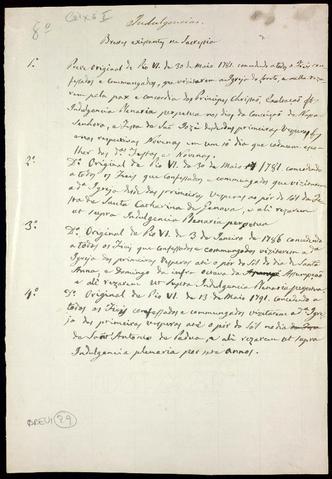 Caixa I
8º
Indulgencias.
Breves existentes na Sacristia
1.º Breve original de Pio VI. de 30 de Maio 1781. concedendo a todos os Fieis con-
fessados e commungados, que vizitarem a Igreja do forte, e nella reza-
rem pela paz e concordia dos Principes Christãos, Exaltação &ª
Indulgencia Plenaria perpetua nos dias da Conceição de Nossa
Senhora, e Festa de São José desde as primeiras Vesperas, e
anos respectivas Novenas em um só dia que cada um esco-
lher das dªs Festas, e Novenas.
2.º Dº Original de Pio VI. de 30 de Maio 1781. concedendo
a todos os Fieis que confessados e commungados vizitarem
a dª Igreja desde as primeiras vesperas ao pôr do sol da Fes-
ta de Santa Catharina de Genova, e ali rezarem
ut supra Indulgencia Plenaria perpetua
3.º Dº Original de Pio VI. de 3 de Janeiro de 1786 concedendo
a todos os Fieis que confessados e commungados vizitarem a dª
Igreja das primeiras Vesperas até o pôr do sol do dia de Santa
Anna, e Domingo da infra octava da Assumpção
e ali rezarem ut supra Indulgencia Plenaria perpetua.
4.º Dº Original de Pio VI. de 13 de Maio 1791. concedendo a
todos os Fieis confessados e commungados vizitarem a dª Igre-
ja das primeiras vesperas até o pôr do sol no dia
de Santo Antonio de Padua, e ali rezarem ut supra
Indulgencia plenaria por sete annos.
BREVI 29